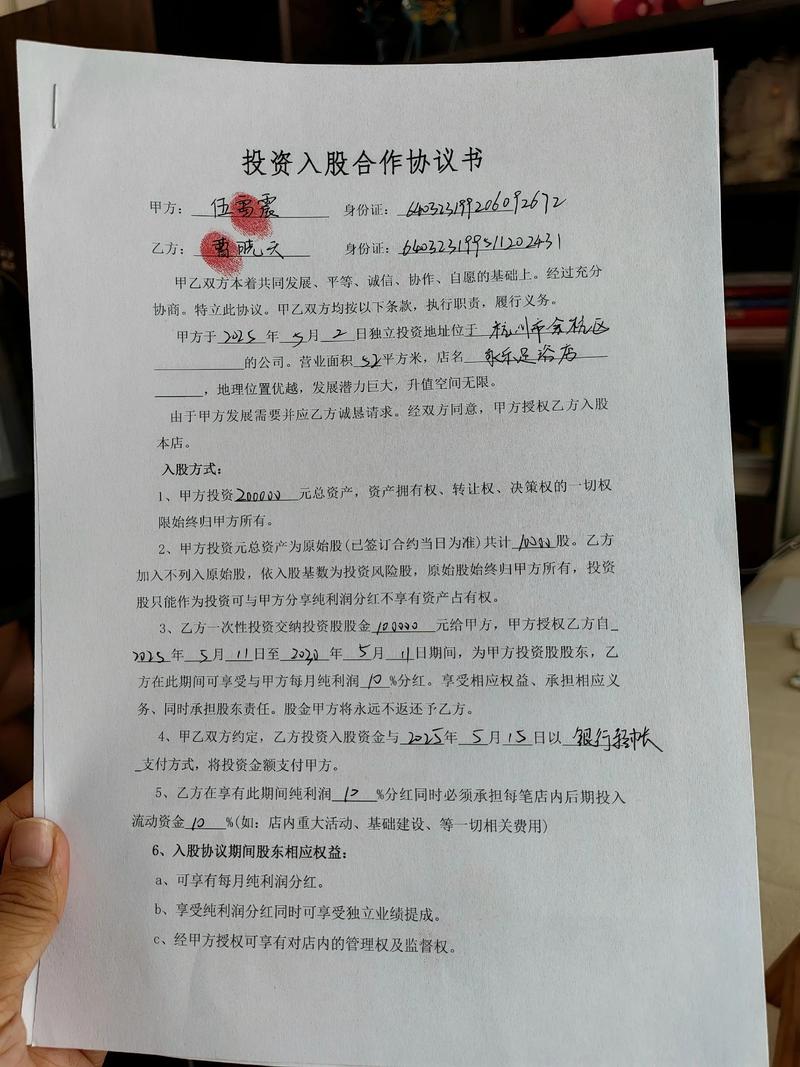 投资入股合作协议书
甲方：伍雷震 身份证：640323199206092672
乙方：曹晓天 身份证：640323199511202431
甲乙双方本着共同发展、平等、诚信、协作、自愿的基础上。经过充分
协商。特立此协议。甲乙双方均按以下条款，执行职责，履行义务。
甲方于 2025 年 5 月 2 日独立投资地址位于 杭州市余杭区
的公司。营业面积 52 平方米，店名 永乐足浴店
，地理位置优越，发展潜力巨大，升值空间无限。
由于甲方发展需要并应乙方诚恳请求。经双方同意，甲方授权乙方入股
本店。
入股方式：
1、甲方投资 200000 元总资产，资产拥有权、转让权、决策权的一切权
限始终归甲方所有。
2、甲方投资元总资产为原始股(已签订合约当日为准)共计 1000 股。乙方
加入不列入原始股，依入股基数为投资风险股，原始股始终归甲方所有，投资
股只能作为投资可与甲方分享纯利润分红不享有资产占有权。
3、乙方一次性投资交纳投资股股金 100000 元给甲方，甲方授权乙方自
2025 年 5 月 11 日至 2030 年 5 月 11 日期间，为甲方投资股股东，乙
方在此期间可享受与甲方每月纯利润 10 %分红。享受相应权益、承担相应义
务、同时承担股东责任。股金甲方将永远不返还予乙方。
4、甲乙双方约定，乙方投资入股资金与 2025 年 5 月 15 日以 银行转帐
支付方式，将投资金额支付甲方。
5、乙方在享有此期间纯利润 10 %分红同时必须承担每笔店内后期投入
流动资金 10 %(如：店内重大活动、基础建设、等一切相关费用)
6、入股协议期间股东相应权益：
a、可享有每月纯利润分红。
b、享受纯利润分红同时可享受独立业绩提成。
c、经甲方授权可享有对店内的管理权及监督权。